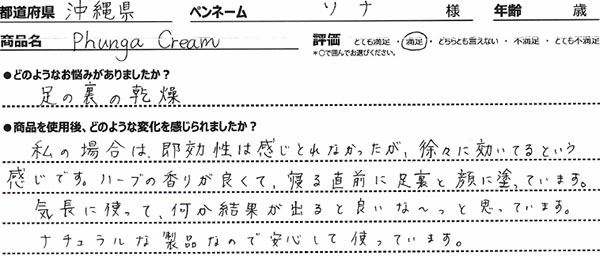 都道府県 沖縄県 ペンネーム ソナ 様 年齢 歳
商品名 Phunga Cream 評価 とても満足・満足・どちらとも言えない・不満足・とても不満足
*○で囲んでお選びください。
●どのようなお悩みがありましたか？
足の裏の乾燥
●商品を使用後、どのような変化を感じられましたか？
私の場合は、即効性は感じとれなかったが、徐々に効いてるという
感じです。ハーブの香りが良くて、寝る直前に足裏と顔に塗っています。
気長に使って、何か結果が出ると良いな～っと思っています。
ナチュラルな製品なので安心して使っています。